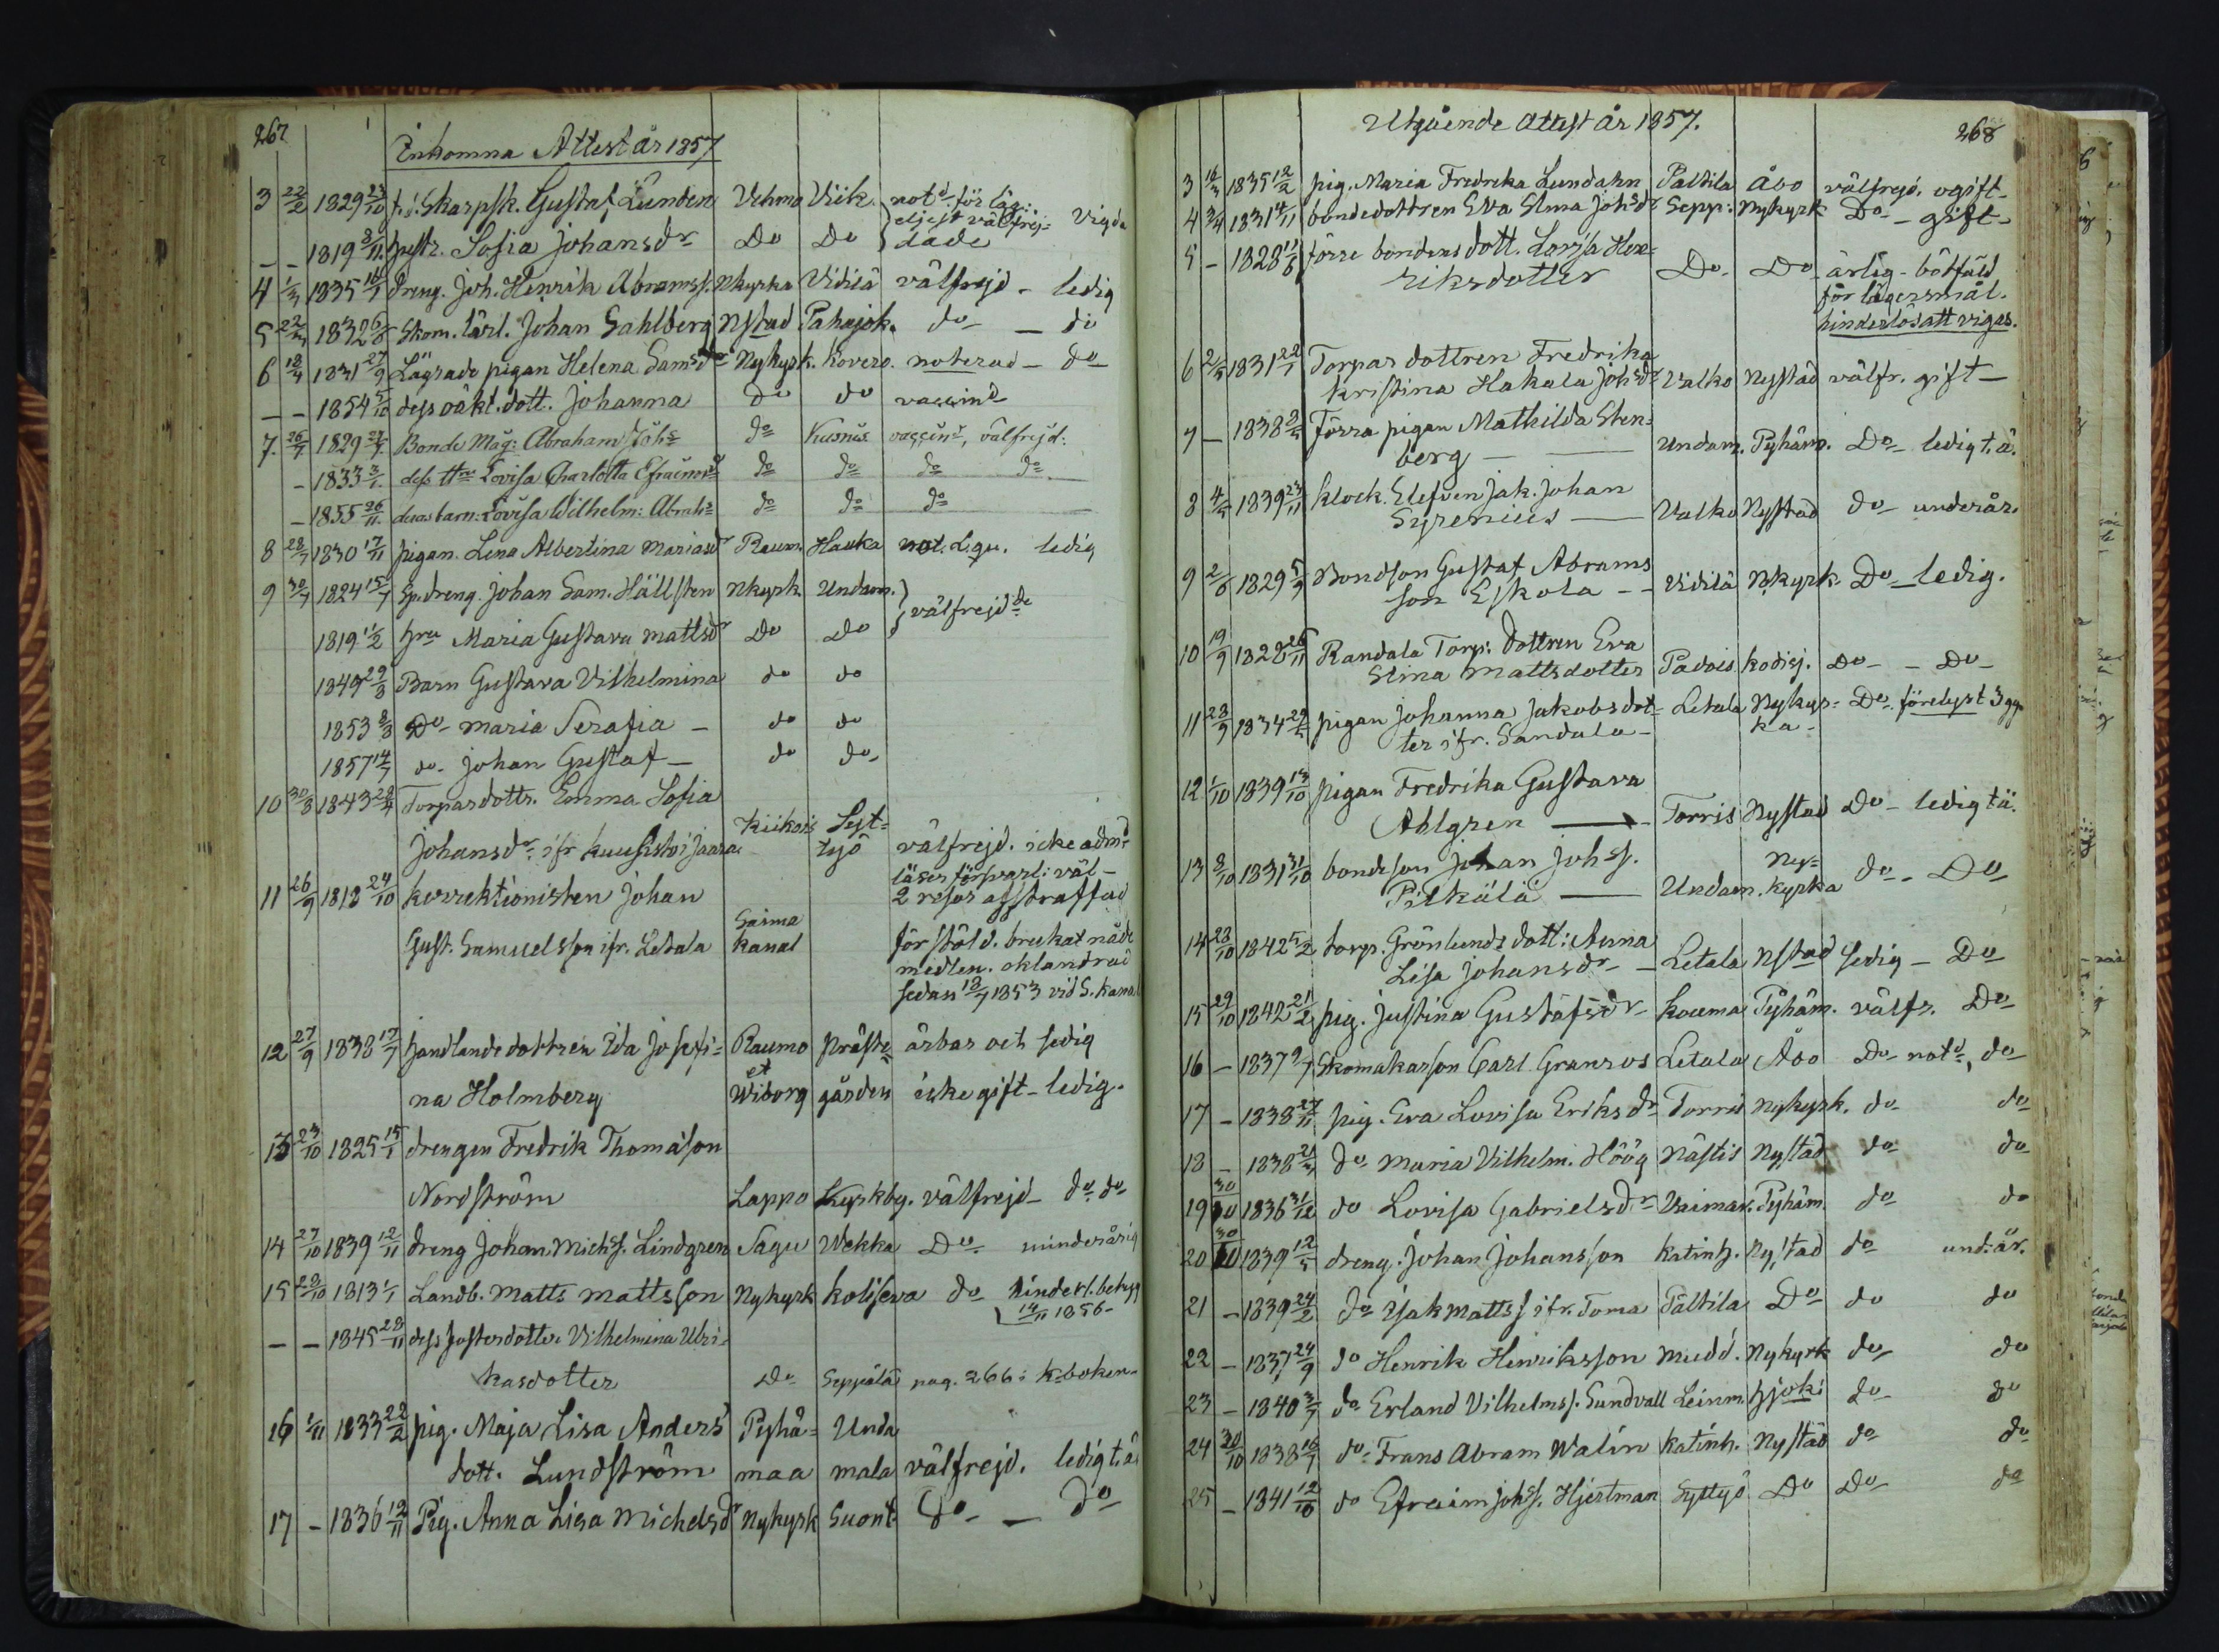 267
Inkomna Attest år 1857
3 22/2 1829 23/10 f.d. Skarpsk. Gustaf Lunden Vehmo Viik. not.d för läg:
eljest välfrej= Vigda
– – 1819 8/11. hustr. Sofia Johansdr Do Do dade
4 1/3 1835 14/7 Dreng. Joh. Henrik Abramss. Nkyrka Vidilä välfrejd – ledig
5 22/3 1832 6/8 Skom. lärl. Johan Sahlberg Nstad Pahojok. do – do
6 18/4 1831 27/9 Lägrade pigan Helena Samsdr Nykyrk. Kovero. noterad – do
– – 1854 5/10 dess oäkt. dott. Johanna do do vaccind
7. 26/7 1829 27/7. Bonde Måg: Abraham Johs do Kusnis vaccind, välfrejd:
– 1833 3/1. dess Lovisa Charlotta do do do do
– 1855 26/11. deras barn: Lovisa Wilhelm: Abrah: do do do
8 28/7 1830 17/11 pigan. Lena Albertina Mariasdr Raum. Hauka not. ledig
9 30/7 1824 15/7 Sp. dreng. Johan Sam. Hällsten Nkyrk Undam.
välfrejd:de
1819 11/2 hru Maria Gustava Mattsdr Do Do
1849 29/8 Barn Gustava Vilhelmina do do
1853 8/3 Do– Maria Serafia – do do
1857 14/7 do– Johan Gustaf – do do–
10 30/8 1843 28/4 Torpardottr. Emma Sofia
Kiikois Syt=
Johansdr. ifr työ välfrejd. icke adm:d
läser försvarl: väl –
11 26/9 1818 24/10 korrektionisten Johan 2 resor afstraffad
Saima
Gust. Samuelsson ifr. Letala Kanal för stöld. brukat nåde
medlen. oklandrad
sedan 18/7 1853 vid S. kanal
12 27/9 1838 17/7 handlandedottren Ida Josefi= Raumo Präste= ärbar och sedig
et
na Holmberg Wiborg gården icke gift – ledig.
13 23/10 1825 15/1 drengen Fredrik Thomasson
Nordström Lappo Kyrkby. välfrejd – do. do
14 27/10 1839 12/11 dreng Johan Michss. Lindgren Sagu Wekka Do– minderårig
15 29/10 1813 1/1 Landb. Matts Mattsson Nykyrk Koliseva do hinderl. betyg
14/11 1856–
– – 1845 28/11 dess fosterdotter Vilhelmina Ulri=
kasdotter Do Seppälä pag. 266 i K–boken–
16 1/11 1833 22/2 pig. Maja Lisa Anders Pyhä= Unda
dott. Lundström maa mala välfrejd. ledig t.ä
17 – 1836 12/11 Pig. Anna Lisa Michelsdr Nykyrk Suont do – do
Utgående Attest år 1857.
268
3 16/3 1835 12/2 pig. Maria Fredrika Lundahn Paltila Åbo välfrejd. ogift–
4 2/4 1831 4/11 bondedottren Eva Stina Johsdr Sepp: Nykyrk Do – gift–
5 – 1828 11/6 förre bondens dott. Lovisa Hen=
riksdotter Do– Do ärlig – bötfäld
för lägersmål.
hinderlös att vigas.
6 2/5 1831 22/1 Torpardottren Fredrika
Kristina Hakala Johsdr Valko Nystad välfr. gift –
7 – 1838 2/5 förra pigan Mathilda Sten=
berg – Undam. Pyhäm. Do– ledig t.ä.
8 4/5 1839 23/11 klock. Elefven Jak. Johan
Syrenius – Valko Nystad do– underår.
9 2/6 1829 5/9 Bondson Gustaf Abrams
son Eskola – – Vidilä Nkyrk. Do – ledig.
10 19/9 1828 26/11 Randala Torp: dottren Eva
Stina Mattsdotter Padois kodisj. Do – – Do–
11 28/9 1834 29/5 pigan Johanna Jakobsdot= Letala Nykyr= Do. förelyst 3 gg
ter ifr. Sandala – ka–
12 1/10 1839 13/10 pigan Fredrika Gustava
Ahlgren — Torris Nystad Do – ledig t.ä.
13 8/10 1831 31/10 bondeson Johan Johss. Ny=
Pitkälä — Undam. kyrka do – Do
14 28/10 1842 5/2 torp. Grönlunds dott: Anna
Lisa Johansdr – Letala Nstad sedig – Do
15 29/10 1842 21/2 pig. Justina Gustafsdr Kouma Pyhäm. välfr. Do–
16 – 1837 9/7 Skomakarson Carl Granros Letala Åbo Do– notd, do
17 – 1838 27/11 pig. Eva Lovisa Eriksdr Torris Nykyrk. do– do
18 – 1838 21/3 do Maria Vilhelm. Höög Nästis Nystad do do
19 30/10 1836 31/12 do Lovisa Gabrielsdr Vaimar. Pyhäm. do do
20 30/10 1839 12/5 dreng. Johan Johansson Katinh. Nystad do und:år.
21 – 1839 24/2 do Isak Mattss ifr. Toma Paltila Do do do
22 – 1837 24/9 do Henrik Henriksson Mudd. Nykyrk do– do
23 – 1840 3/7 do Erland Vilhelmss. Sundvall Leinm. Hjoki do– do
24 30/10 1838 16/7 do– Frans Abram Walin Katinh. Nystad do do
25 – 1841 12/10 do Efraim Johss. Hjertman Syttyö Do Do– do